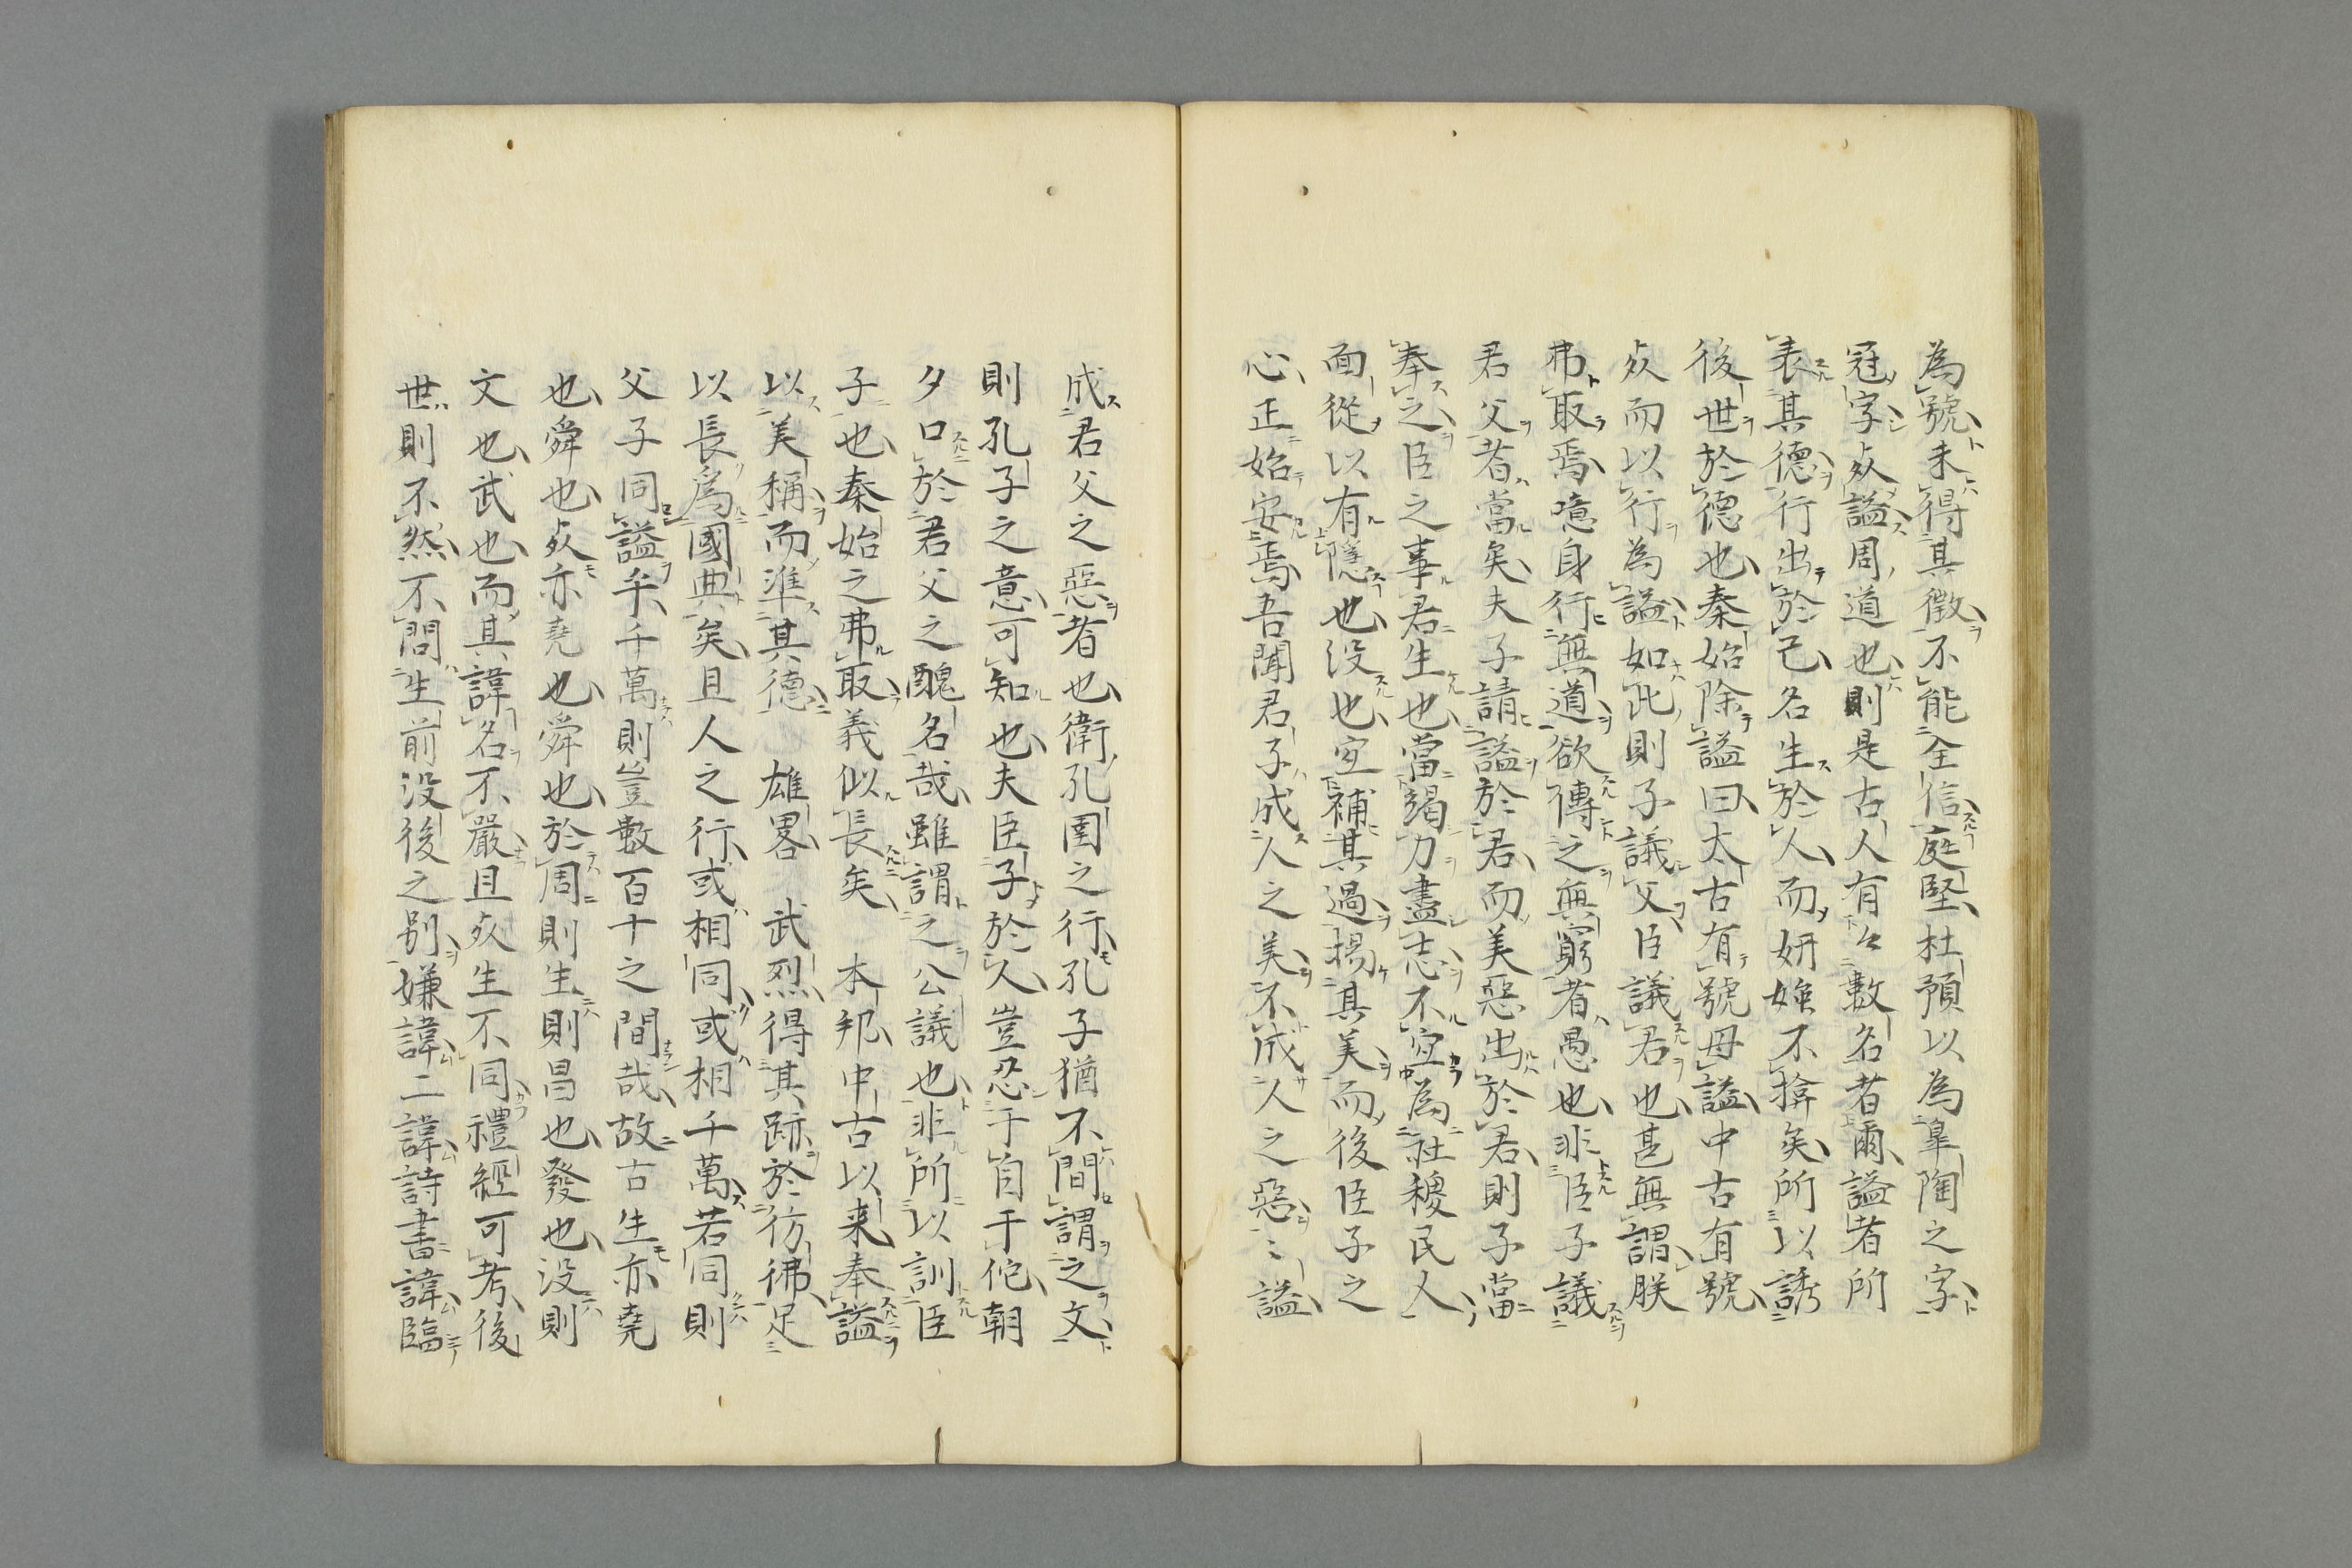 為號未得其徴不能全信庭堅杜預以為皐陶之字
冠字死謚周道也則是古人有々數名者爾謚者所
表其德行出於己名生於人而妍媸不揜矣所以誘
後世於德也秦始除謚曰太古有號毋謚中古有號
死而以行為謚如此則子議父臣議君也甚無謂朕
弗取焉噫身行無道欲傳之無窮者愚也非臣子議
君父者當矣夫子請謚於君而美惡出於君則子當
奉之臣之事君生也當竭力盡志不宜為社稷民人
面從以有隱也没也宜補其過揚其美而後臣子之
心正始安焉吾聞君子成人之美不成人之惡〻謚
成君父之惡者也衛孔圉之行孔子猶不間謂之文
則孔子之意可知也夫臣子於人豈忍于自于佗朝
夕口於君父之醜名哉雖謂之公議也非所以訓臣
子也秦始之弗取義似長矣 本邦中古以来奉謚
以美稱而準其德 雄畧 武烈得其跡於彷彿足
以長為國典矣且人之行或相同或相千萬若同則
父子同謚乎千萬則豈數百十之間哉故古生亦堯
也舜也死亦堯也舜也於周則生則昌也發也没則
文也武也而其諱名不嚴且死生不同禮經可考後
世則不然不問生前没後之別嫌諱二諱詩書諱臨